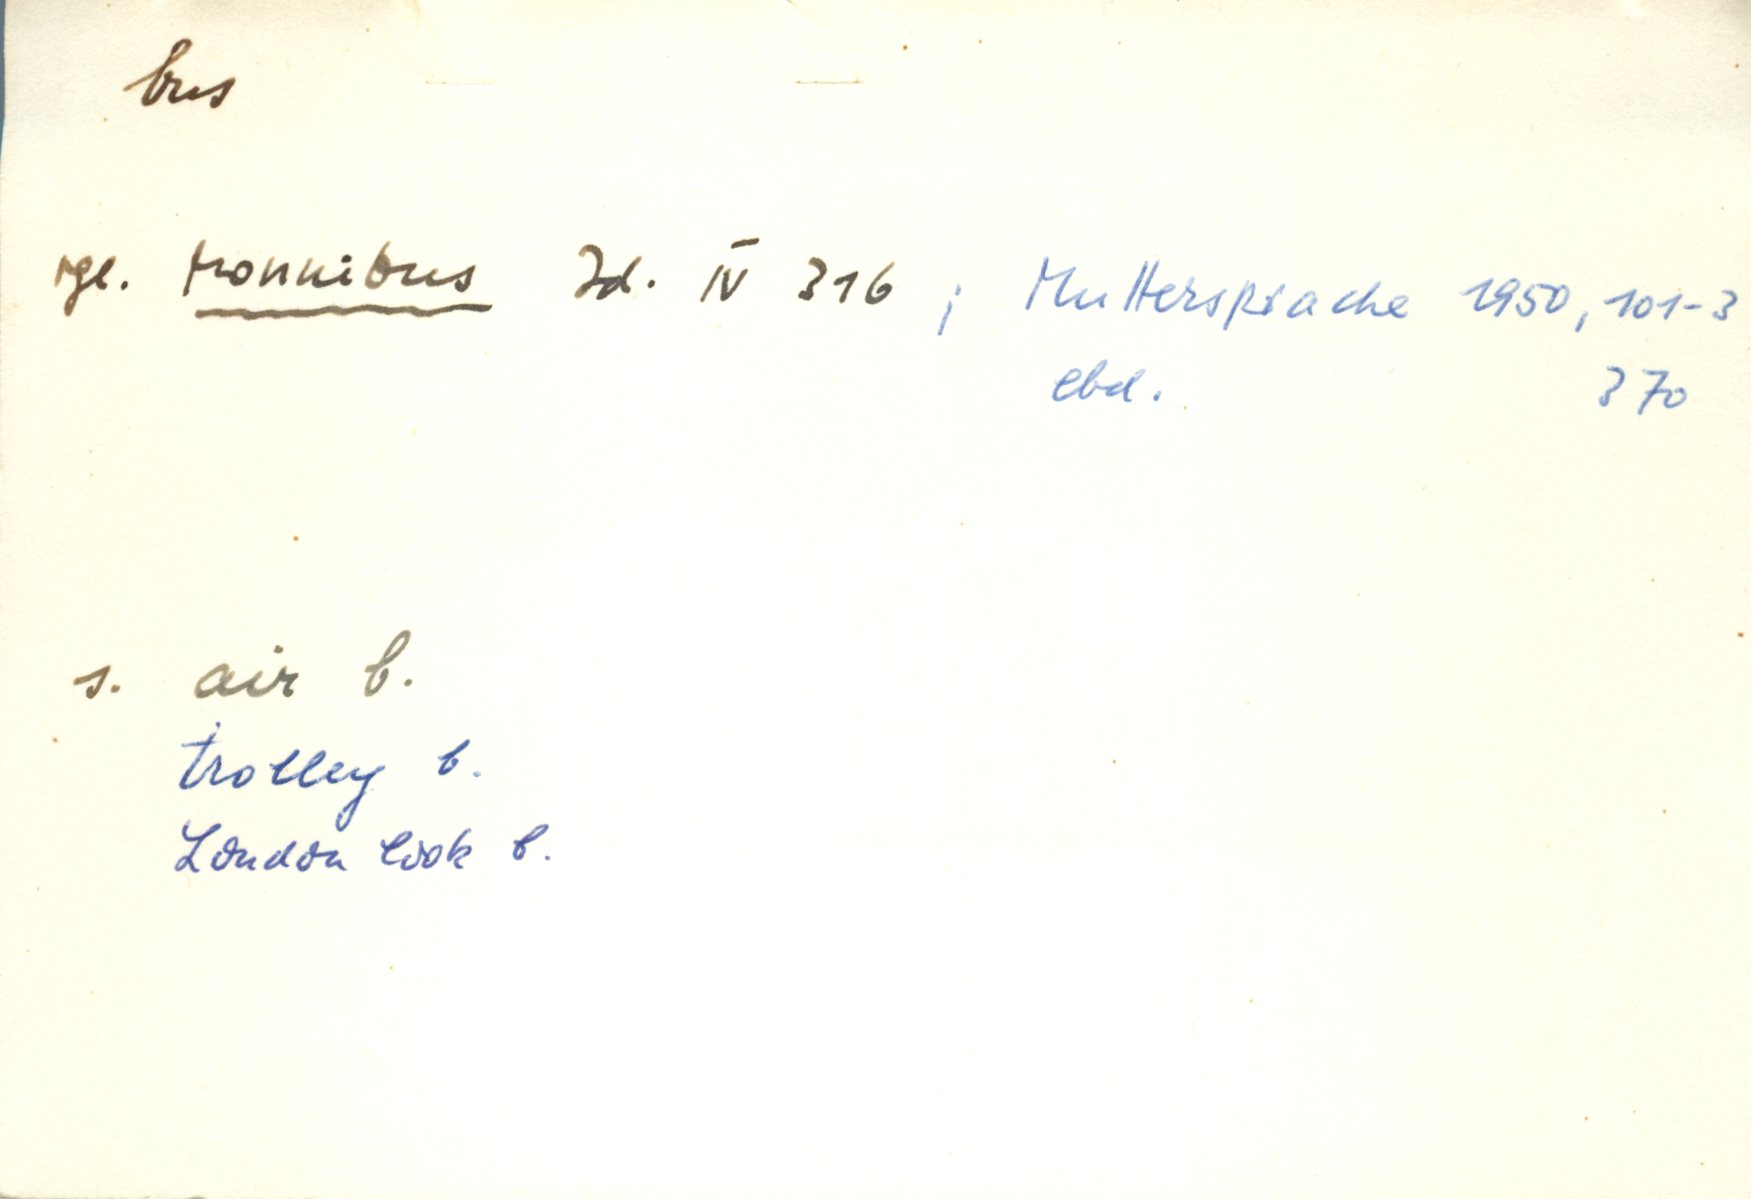 bus
vgl. Monnibus Id. IV 316 ; Muttersprache 1950, 101-3
ebd. 370
s. air b.
trolley b.
London look b.